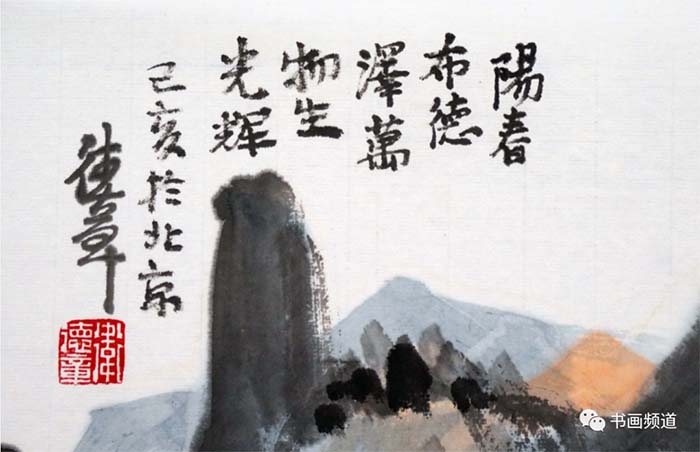 陽春
布德
澤萬
物生
光辉
己亥於北京
德章
衛
德章
书画频道